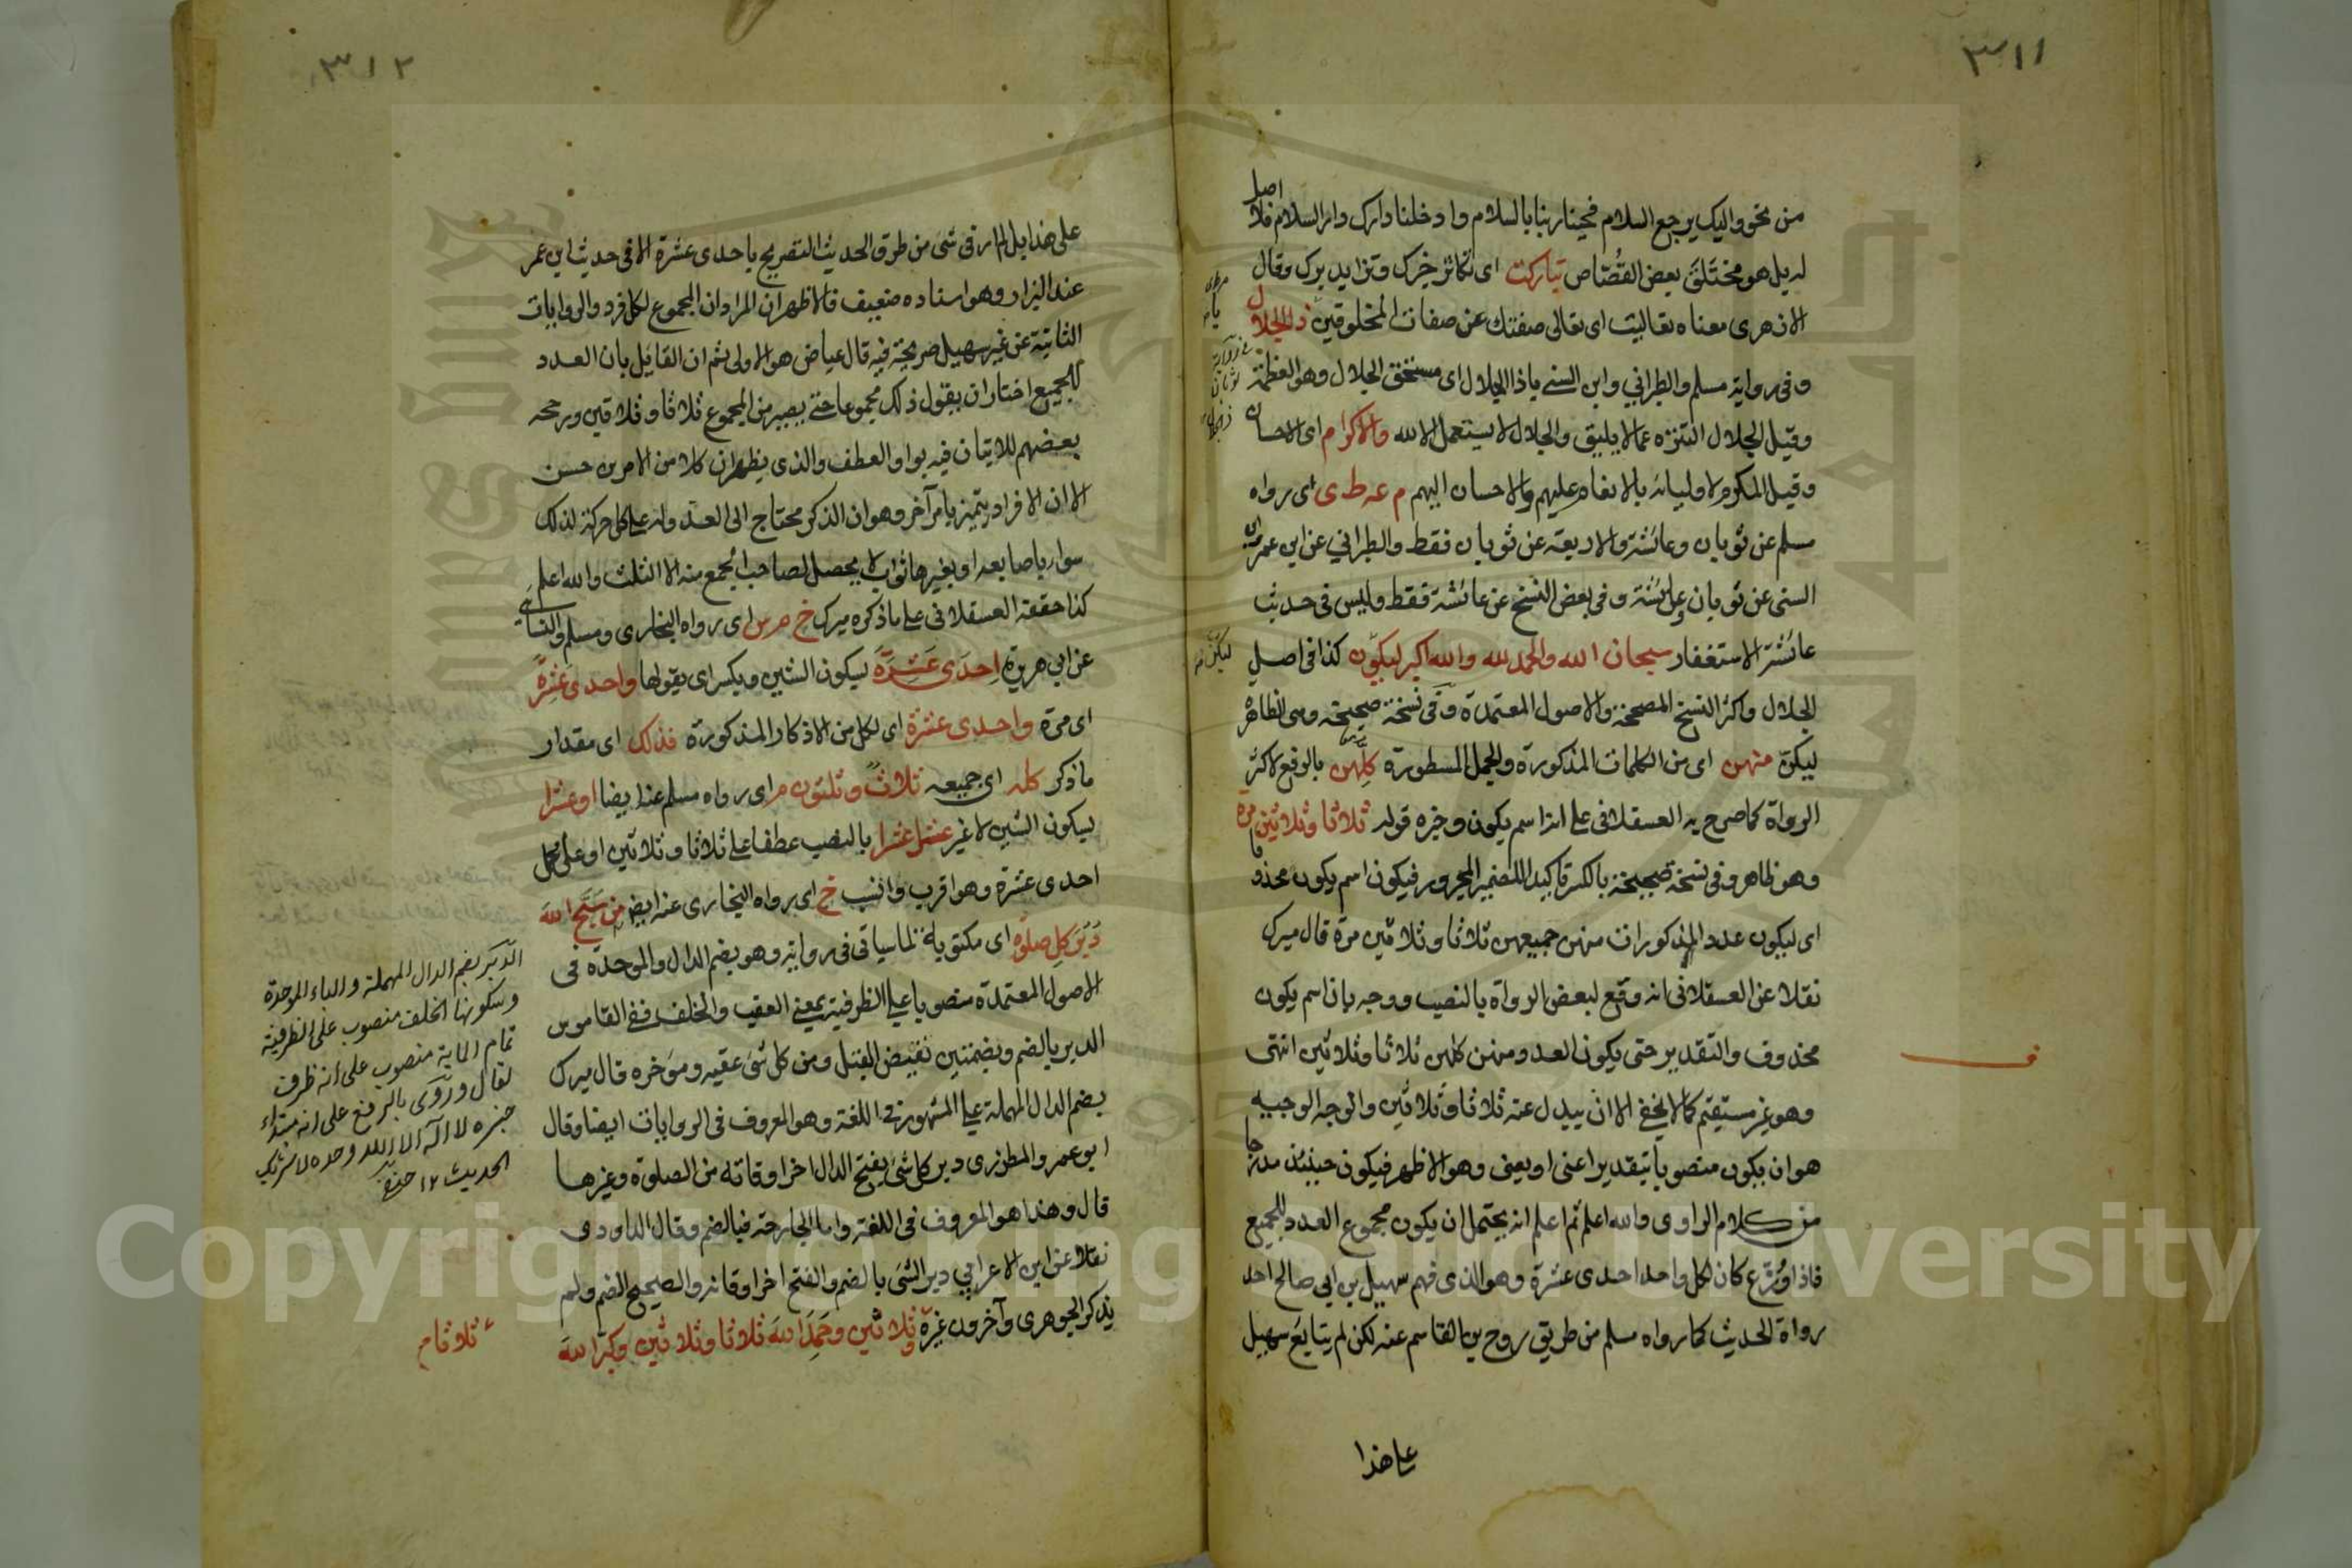 ٣١١
من نحو واليك يرجع السلام فحينا ربنا بالسلام وادخلنا دارك دار السلام فلا اصل
له بل هو مختلق بعض القصاص تباركت اى تكاثر خيرك وتزايد برك وقال
الازهرى معناه تعاليت اى تعالى صفتك عن صفات المخلوقين ذا الجلال
وفى رواية مسلم والطبراني وابن السني ياذا الجلال اى مستحق الجلال وهو العظمة
وقيل الجلال التنزه عما لا يليق والجلال لا يستعمل الا لله والاكرام اى الاحسان
وقيل المكرم لاوليائه بالانعام عليهم والاحسان اليهم م عه ط ى اى رواه
مسلم عن ثوبان وعائشة والاربعة عن ثوبان فقط والطبراني عن ابن عمر وابن
السني عن ثوبان وعائشة وفى بعض النسخ عن عائشة فقط وليس فى حديث
عائشة الاستغفار سبحان الله والحمد لله والله اكبر ليكون كذا فى اصل
الجلال واكثر النسخ المصححة والاصول المعتمدة وفى نسخة صحيحة وهى الظاهرة
ليكن منهن اى من الكلمات المذكورة والجمل المسطورة كلهن بالرفع لاكثر
الرواة كما صرح به العسقلانى على انه اسم يكون وخبره قوله ثلاثا وثلاثين مرة
وهو ظاهر وفى نسخة صحيحة بالكسر تاكيدا للضمير المجرور فيكون اسم يكون محذوفا
اى ليكون عدد المذكورات منهن جميعهن ثلاثا وثلاثين مرة قال ميرك
نقلا عن العسقلانى انه وقع لبعض الرواة بالنصب ووجه بان اسم يكون
محذوف والتقدير حتى يكون العدد منهن كلهن ثلاثا وثلاثين انتهى
وهو غير مستقيم كما لا يخفى الا ان يبدل عنه ثلاثا وثلاثين والوجه الوجيه
هو ان يكون منصوبا بتقدير اعنى او يعنى وهو الاظهر فيكون حينئذ مدرجا
من كلام الراوى والله اعلم ثم اعلم انه يحتمل ان يكون مجموع العدد للجميع
فاذا وزع كان لكل واحد احدى عشرة وهو الذى فهم سهيل بن ابي صالح احد
رواة الحديث كما رواه مسلم من طريق روح بن القاسم عنه لكن لم يتابع سهيل
على هذا
٣١٢
على هذا بل لم ار فى شىء من طرق الحديث التصريح باحدى عشرة الا فى حديث ابن عمر
عند البزار وهو اسناده ضعيف فالاظهر ان المراد ان المجموع لكل فرد والروايات
الثانية عن غير سهيل صريحة فيه قال عياض هو الاولى ثم ان القايل بان العدد
للجميع اختار ان يقول ذلك مجموعا حتى يصير من المجموع ثلاثا وثلاثين ورجحه
بعضهم للاتيان فيه بواو العطف والذى يظهر ان كلا من الامرين حسن
الا ان الافراد يتميز بامر آخر وهو ان الذكر محتاج الى العدد وله على كل حركة لذلك
سواء باصابعه او بغيرها ثواب لا يحصل لصاحب الجمع منه الا الثلث والله اعلم
كذا حققه العسقلانى على ما ذكره ميرك خ م س اى رواه البخارى ومسلم والنسائى
عن ابي هريرة احدى عشرة بسكون الشين ويكسر اى يقولها واحدى عشرة
اى مرة واحدى عشرة اى لكل من الاذكار المذكورة فذلك اى مقدار
ما ذكر كله اى جميعه ثلاث وثلثون م اى رواه مسلم عنه ايضا او عشرا
بسكون الشين لا غير عشرا عشرا بالنصب عطفا على ثلاثا وثلاثين او على محل
احدى عشرة وهو اقرب وانسب خ اى رواه البخارى عنه ايضا من سبح الله
دبر كل صلوة اى مكتوبة لما سياتى فى رواية وهو بضم الدال والموحدة فى
الاصول المعتمدة منصوبا على الظرفية بمعنى العقب والخلف ففى القاموس
الدبر بالضم وبضمتين نقيض القبل ومن كل شىء عقبه ومؤخره قال ميرك
بضم الدال المهملة على المشهور فى اللغة وهو المعروف فى الروايات ايضا وقال
ابو عمر والمطرزى دبر كل شىء بفتح الدال اخر اوقاته من الصلوة وغيرها
قال وهذا هو المعروف فى اللغة واما الجارحة فبالضم وقال الداودى
نقلا عن ابن الاعرابي دبر الشىء بالضم والفتح اخر اوقاته والصحيح الضم ولم
يذكر الجوهرى وآخرون غيره ثلاثا وثلاثين وحمد الله ثلاثا وثلاثين وكبر الله
الدبر بضم الدال المهملة والباء الموحدة
وسكونها الخلف منصوب على الظرفية
تمام الماية منصوب على انه ظرف
لقال وروى بالرفع على انه مبتداء
خبره لا اله الا الله وحده لا شريك
الحديث ١٢
ثلاثا م
Copyright © King Saud University